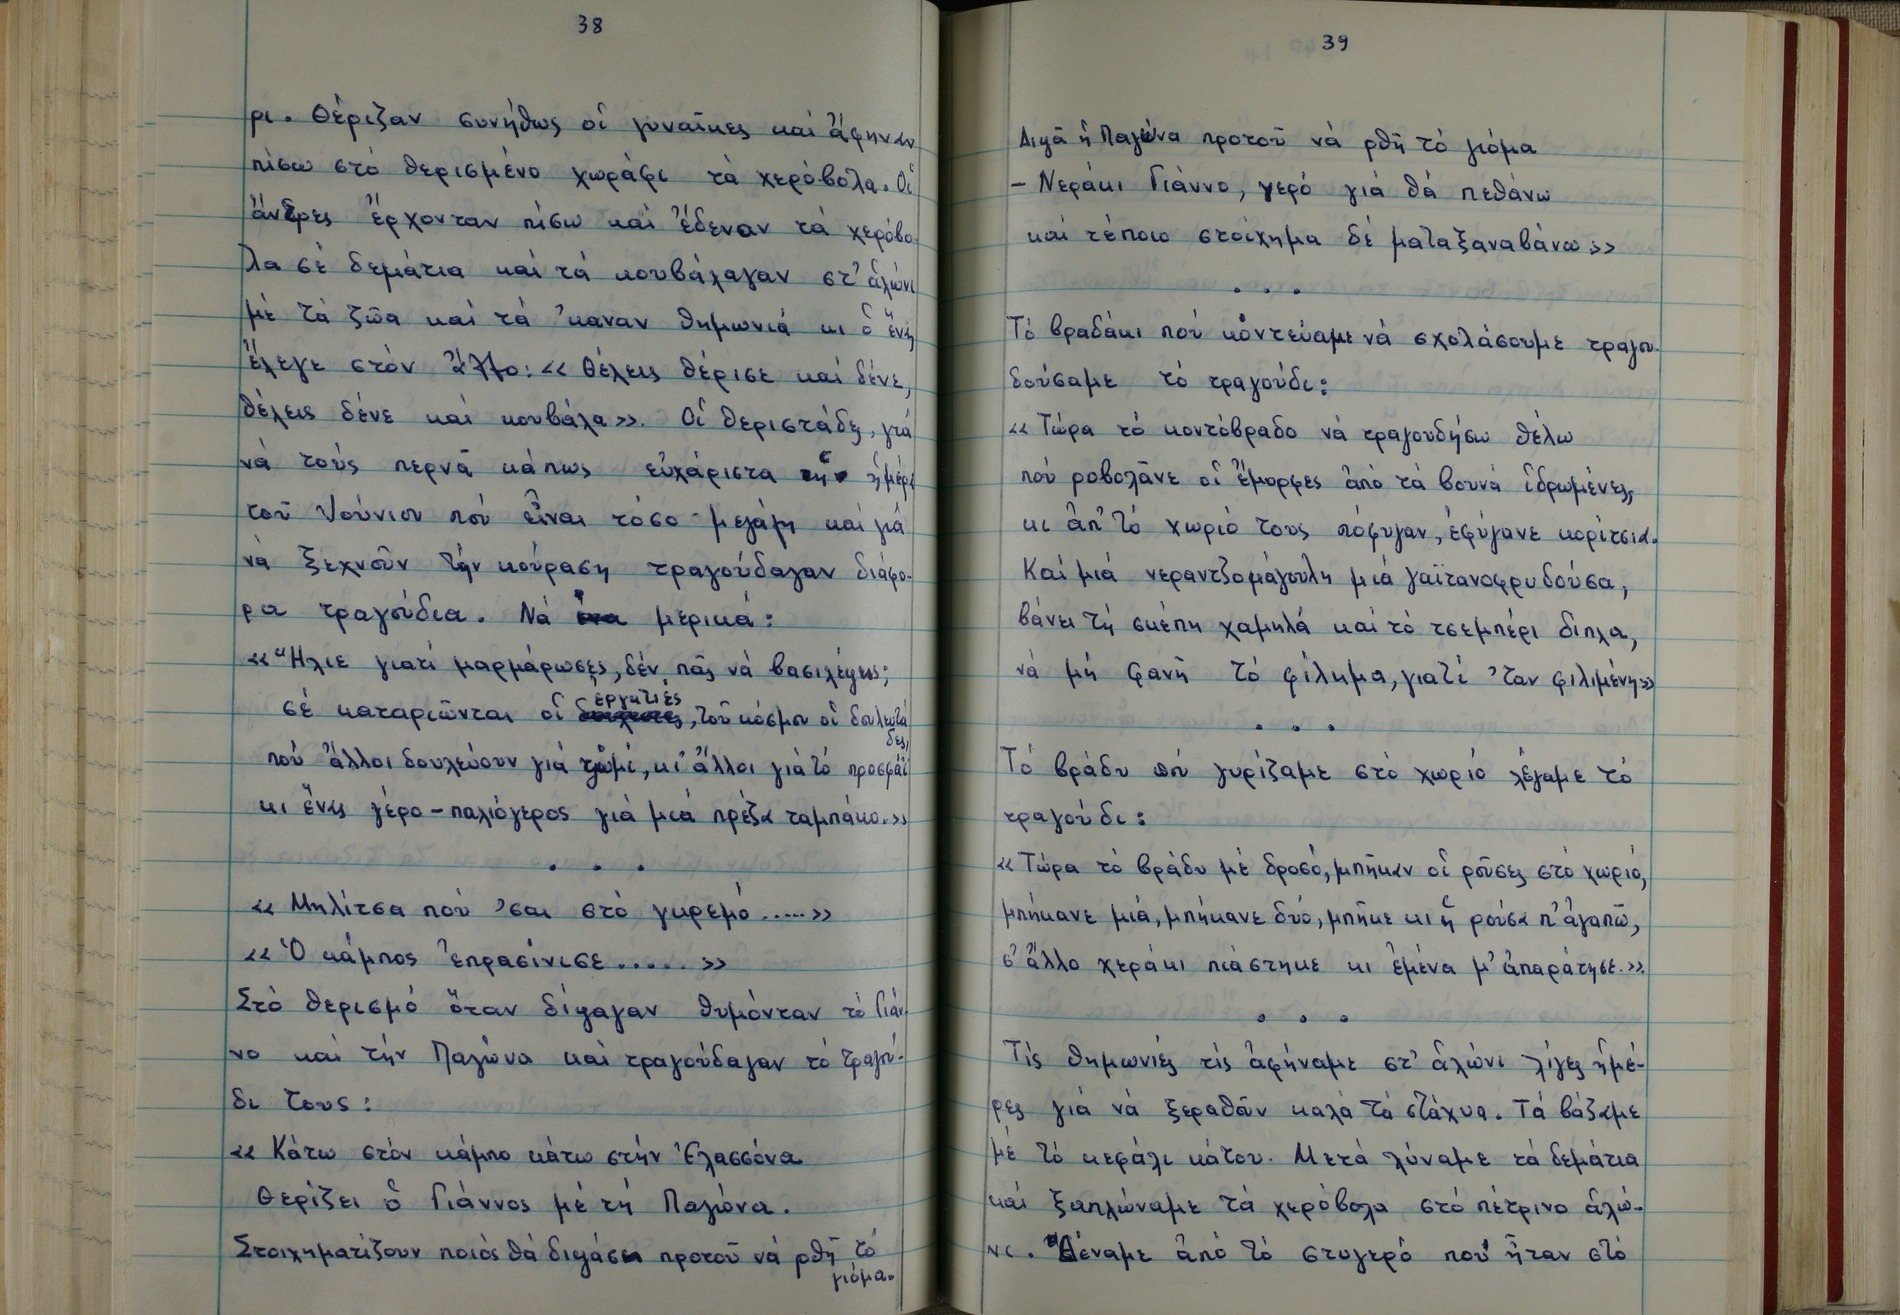 38
ρι. Θέριζαν συνήθως οἱ γυναῖκες καί ἄφηναν
πίσω στό θερισμένο χωράφι τά χερόβολα. Οἱ
ἄντρες ἔρχονταν πίσω καί ἔδεναν τά χερόβο-
λα σέ δεμάτια καί τά κουβάλαγαν στ' ἁλώνι
μέ τά ζῶα καί τά 'καναν θημωνιά κι ὁ ἕνας
ἔλεγε στόν ἄλλο: «Θέλεις θέρισε καί δένε,
θέλεις δένε καί κουβάλα». Οἱ θεριστάδες, γιά
νά τούς περνᾶ κάπως εὐχάριστα ἡ ἡμέρα
τοῦ Ἰούνιου πού εἶναι τόσο μεγάλη καί γιά
νά ξεχνοῦν τήν κούραση τραγούδαγαν διάφο-
ρα τραγούδια. Νά μερικά:
«Ἥλιε γιατί μαρμάρωσες, δέν πᾶς νά βασιλέψεις;
σέ καταριῶνται οἱ ἐργατιές, τοῦ κόσμου οἱ δουλευτάδες,
πού ἄλλοι δουλεύουν γιά ψωμί, κι ἄλλοι γιά τό προσφάϊ
κι ἕνας γέρο-παλιόγερος γιά μιά πρέζα ταμπάκο.»
. . .
«Μηλίτσα πού 'σαι στό γκρεμό.....»
«Ὁ κάμπος ἐπρασίνισε......»
Στό θερισμό ὅταν δίψαγαν θυμόνταν τό Γιάν-
νο καί τήν Παγώνα καί τραγούδαγαν τό τραγού-
δι τους:
«Κάτω στόν κάμπο κάτω στήν Ἐλασσόνα
Θερίζει ὁ Γιάννος μέ τή Παγώνα.
Στοιχηματίζουν ποιός θά διψάσει προτοῦ νά ρθῆ τό
γιόμα.
39
Διψᾶ ἡ Παγώνα προτοῦ νά ρθῆ τό γιόμα
- Νεράκι Γιάννο, νερό γιά θά πεθάνω
καί τέποιο στοίχημα δέ ματαξαναβάνω»
. . .
Τό βραδάκι πού κοντεύαμε νά σχολάσουμε τραγου-
δούσαμε τό τραγούδι:
«Τώρα τό κοντόβραδο νά τραγουδήσω θέλω
πού ροβολᾶνε οἱ ἔμορφες ἀπό τά βουνά ἱδρωμένες,
κι ἀπ' τό χωριό τους πόφυγαν, ἐφύγανε κορίτσια.
Καί μιά νεραντζομάγουλη μιά γαϊτανοφρυδούσα,
βάνει τή σκέπη χαμηλά καί τό τσεμπέρι δίπλα,
νά μή φανῆ τό φίλημα, γιατί 'ταν φιλιμένη»
. . .
Τό βράδυ πού γυρίζαμε στό χωριό λέγαμε τό
τραγούδι:
«Τώρα τό βράδυ μέ δροσό, μπῆκαν οἱ ροῦσες στό χωριό,
μπήκανε μιά, μπήκανε δυό, μπῆκε κι ἡ ρούσα π' ἀγαπῶ,
σ' ἄλλο χεράκι πιάστηκε κι ἐμένα μ' ἀπαράτησε.»
. . .
Τίς θημωνιές τίς ἀφήναμε στ' ἁλώνι λίγες ἡμέ-
ρες γιά νά ξεραθοῦν καλά τά στάχυα. Τά βάζαμε
μέ τό κεφάλι κάτου. Μετά λύναμε τά δεμάτια
καί ξαπλώναμε τά χερόβολα στό πέτρινο ἁλώ-
νι. Δέναμε ἀπό τό στυγερό πού ἦταν στό